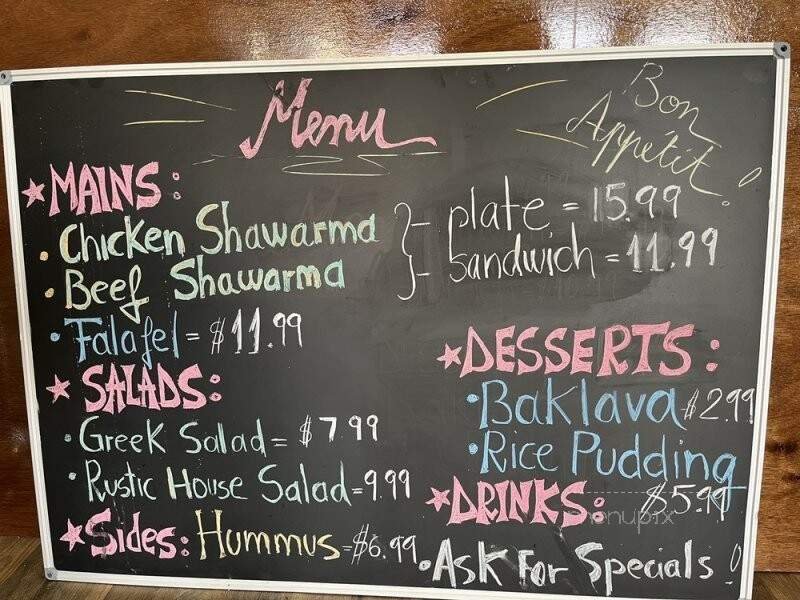 Menu
Bon
Appétit!
★ MAINS:
• Chicken Shawarma
• Beef Shawarma
}- plate = 15.99
- Sandwich = 11.99
• Falafel = $11.99
★ SALADS:
• Greek Salad = $7.99
• Rustic House Salad = 9.99
★ Sides: Hummus = $6.99
★ DESSERTS:
• Baklava $2.99
• Rice Pudding
$5.99
★ DRINKS:
• Ask For Specials!
menupix